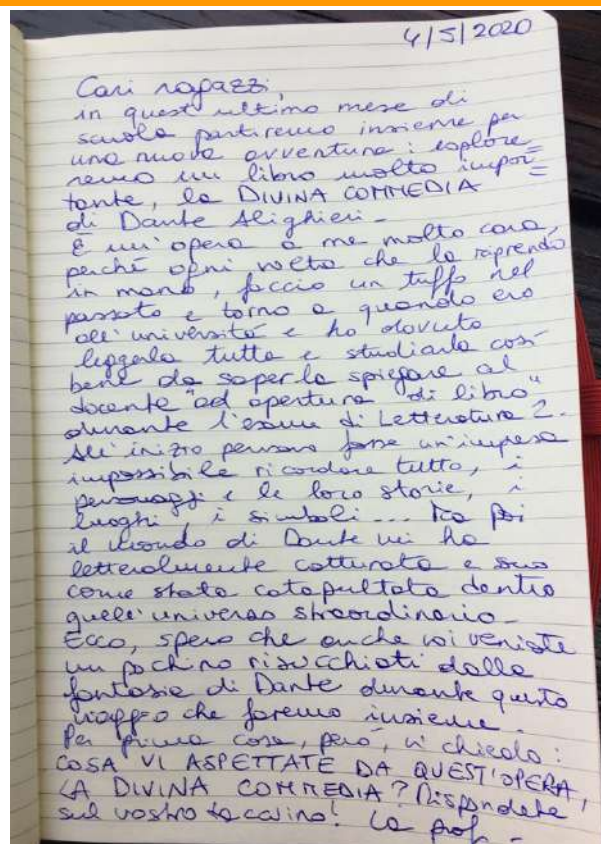 4/5/2020
Cari ragazzi,
in quest'ultimo mese di
scuola partiremo insieme per
una nuova avventura: esplore=
remo un libro molto impor=
tante, la DIVINA COMMEDIA
di Dante Alighieri -
È un'opera a me molto cara,
perché ogni volta che la riprendo
in mano, faccio un tuffo nel
passato e torno a quando ero
all'università e ho dovuto
leggerla tutta e studiarla così
bene da saperla spiegare al
docente "ad apertura di libro"
durante l'esame di Letteratura 2.
All'inizio pensavo fosse un'impresa
impossibile ricordare tutto, i
personaggi e le loro storie, i
luoghi, i simboli... Ma poi
il mondo di Dante mi ha
letteralmente catturata e sono
come stata catapultata dentro
quell'universo straordinario -
Ecco, spero che anche voi veniate
un pochino risucchiati dalla
fantasia di Dante durante questo
viaggio che faremo insieme.
Per prima cosa, però, vi chiedo:
COSA VI ASPETTATE DA QUEST'OPERA,
LA DIVINA COMMEDIA? Rispondete
sul vostro taccuino! La prof -